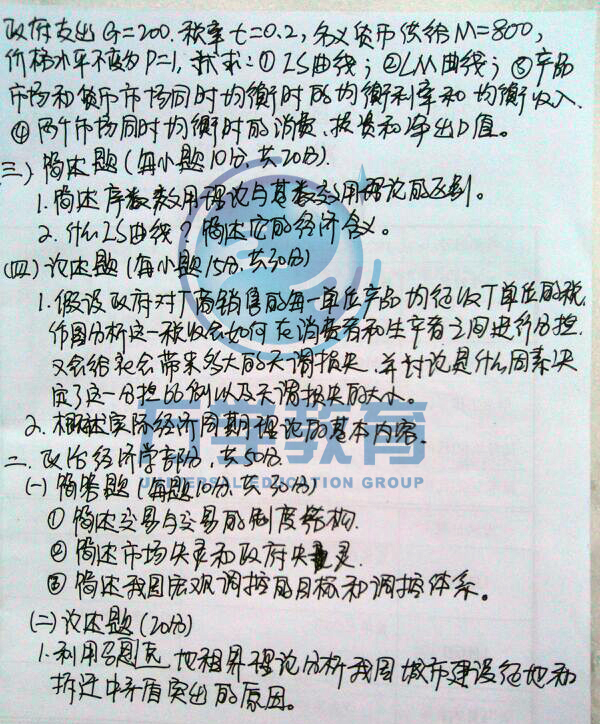 政府支出G=200.税率t=0.2,名义货币供给M=800,
价格水平不变为P=1,试求:①IS曲线;②LM曲线;③产品
市场和货币市场同时均衡时的均衡利率和均衡收入.
④两个市场同时均衡时的消费、投资和净出口值。
三)简述题(每小题10分,共20分).
1.简述序数效用理论与基数效用理论的区别。
2.什么IS曲线?简述它的经济含义。
(四)论述题(每小题15分,共30分)
1.假设政府对厂商销售的每一单位产品均征收T单位的税,
作图分析这一税收会如何在消费者和生产者之间进行分担.
又会给社会带来多大的无谓损失.并讨论是什么因素决
定了这一分担比例以及无谓损失的大小。
2.概述实际经济周期理论的基本内容.
二.政治经济学部分,共50分.
(一)简答题(每题10分,共30分)
①简述交易与交易的制度结构.
②简述市场失灵和政府失灵.
③简述我国宏观调控的目标和调控体系。
(二)论述题(20分)
1.利用马克思地租理论分析我国城市建设征地和
拆迁中矛盾突出的原因。
教育
UNIVERSAL EDUCATION GROUP